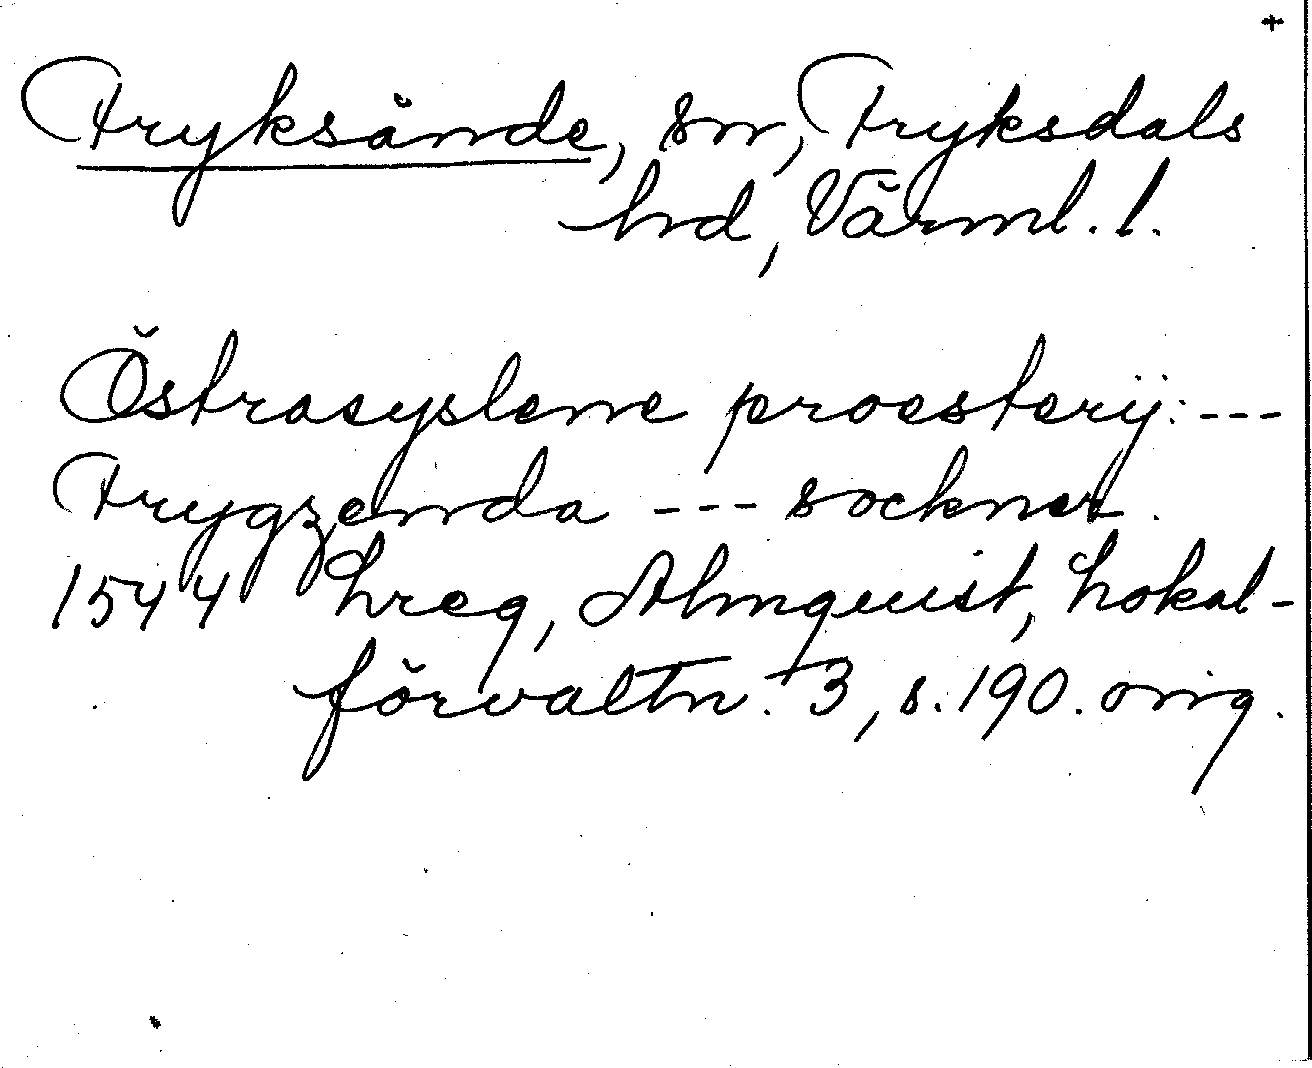 +
Fryksände, sn, Fryksdals
hd, Värml. l.
Östrasyslene proesterÿ: ---
Frygzenda --- sockner.
1544 Lreg, Almquist, Lokal-
förvaltn. 3, s. 190. orig.